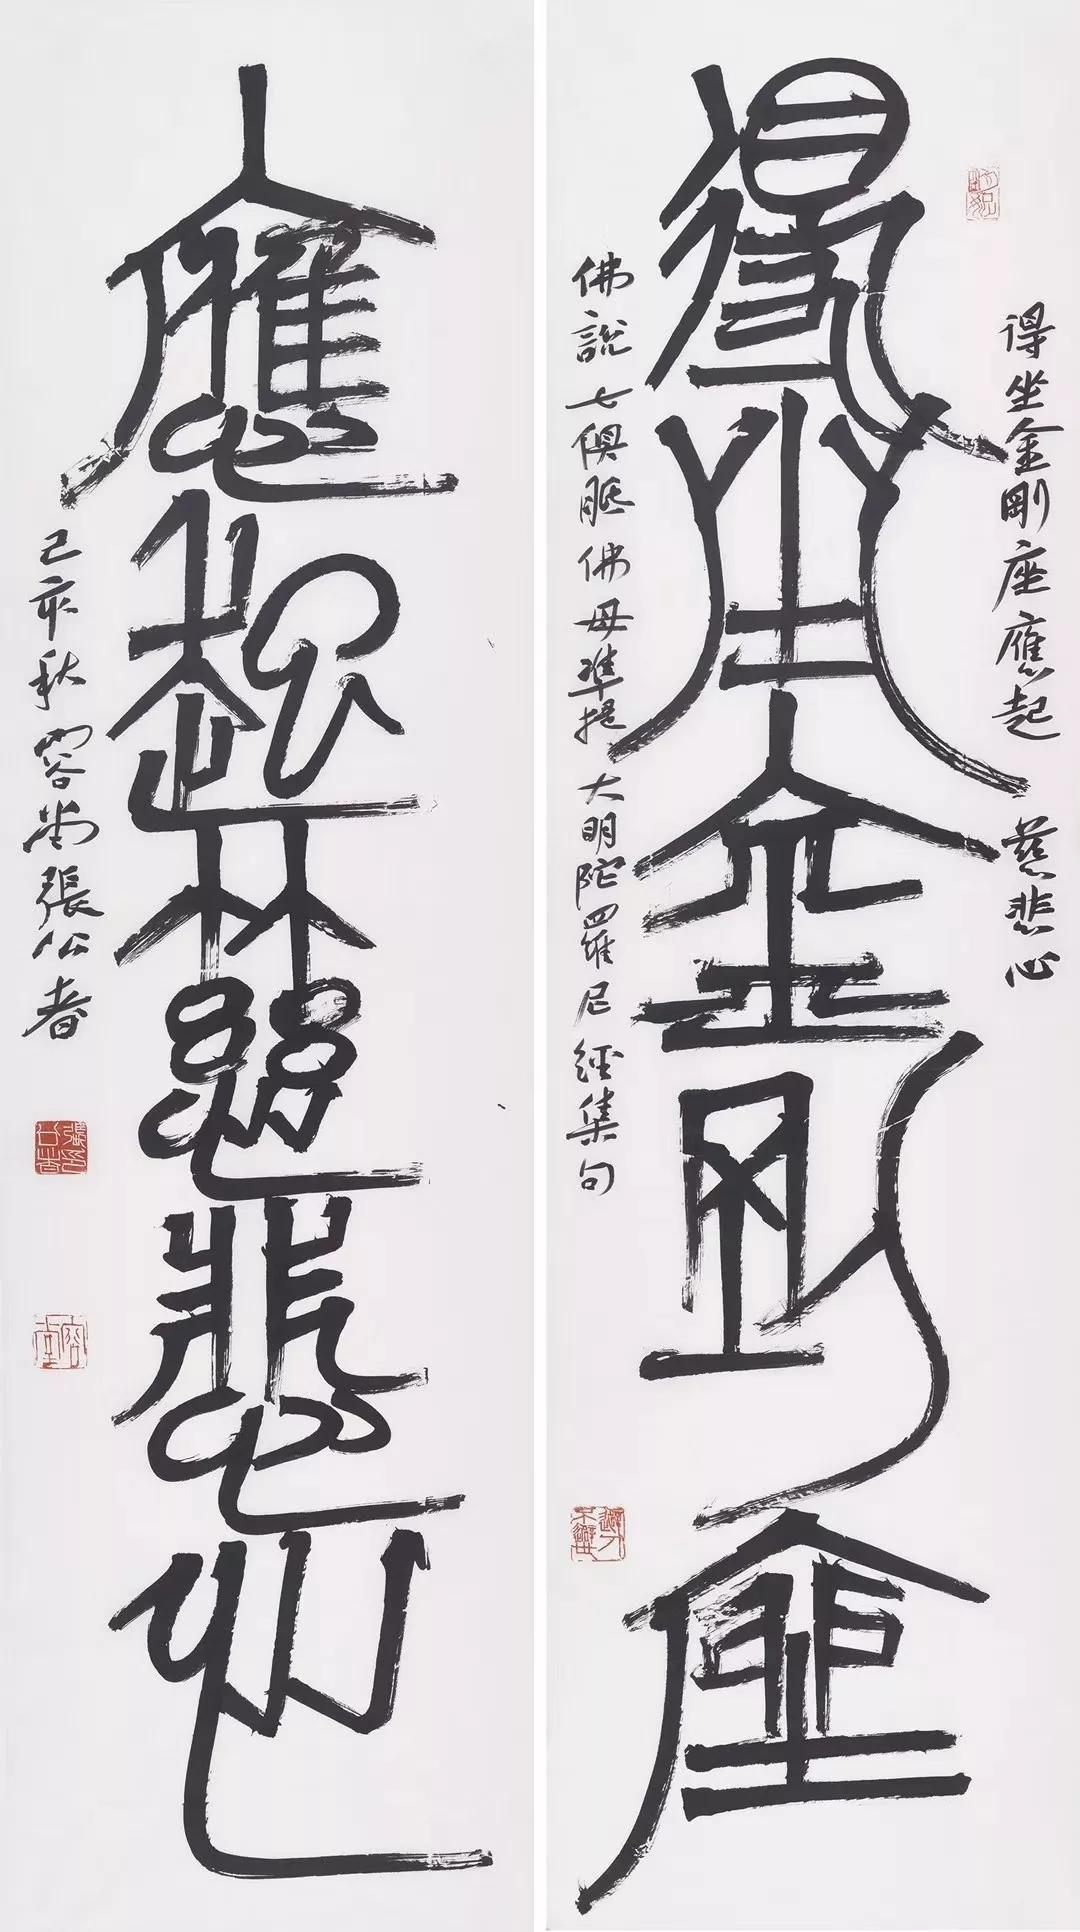 得坐金剛座
應起慈悲心
得坐金剛座應起 慈悲心
佛說七俱胝佛母準提大明陀羅尼經集句
己亥秋容堂張公者